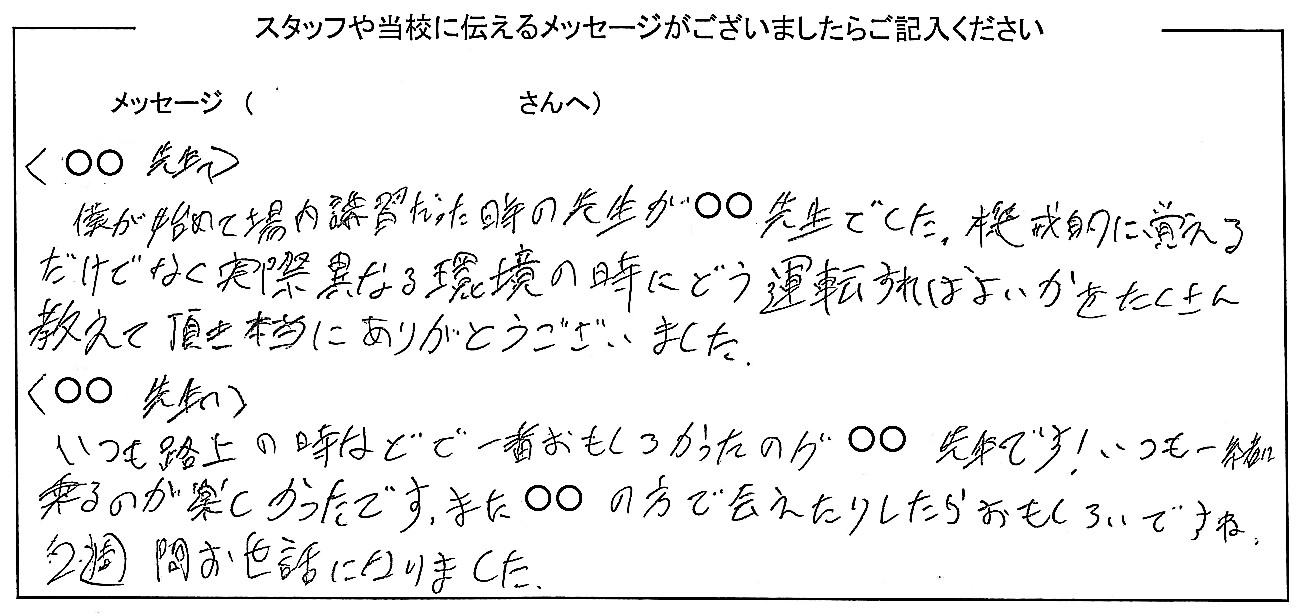 スタッフや当校に伝えるメッセージがございましたらご記入ください
メッセージ ( さんへ)
< ○○ 先生へ>
僕が始めて場内講習だった時の先生が ○○ 先生でした。機戒的に覚える
だけでなく実際異なる環境の時にどう運転すればよいかをたくさん
教えて頂き本当にありがとうございました。
< ○○ 先生へ>
いつも路上の時などで一番おもしろかったのが ○○ 先生です!いつも一緒に
乗るのが楽しかったです。また ○○ の方で会えたりしたらおもしろいですね。
2週間お世話になりました。